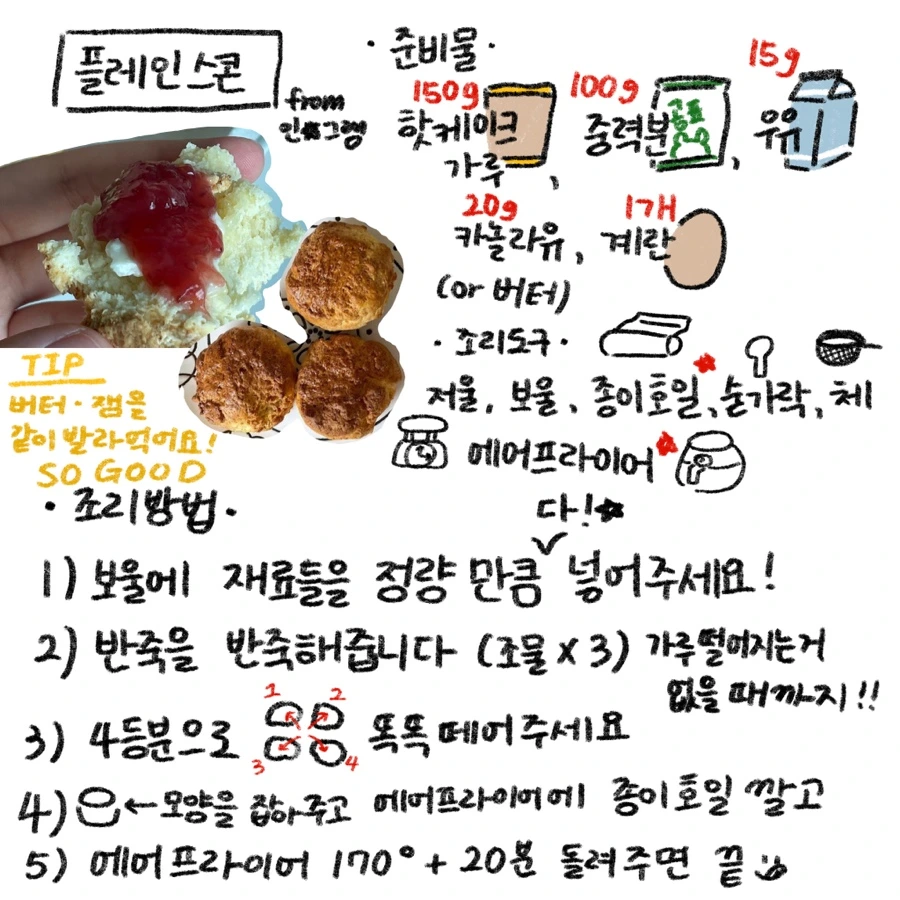 플레인 스콘
from
인★그램
· 준비물 ·
150g 100g 15g
핫케이크 가루, 중력분, 우유
곰표
20g 1개
카놀라유, 계란
(or 버터)
· 조리도구 ·
저울, 보울, 종이호일, 숟가락, 체
에어프라이어
TIP
버터·잼을
같이 발라먹어요!
SO GOOD
· 조리방법 ·
다!★
1) 보울에 재료들을 정량 만큼 넣어주세요!
2) 반죽을 반죽해줍니다 (조물 x 3) 가루떨어지는거
없을 때까지!!
3) 4등분으로 1 2 3 4 똑똑 떼어주세요
4) ← 모양을 잡아주고 에어프라이어에 종이호일 깔고
5) 에어프라이어 170° + 20분 돌려주면 끝